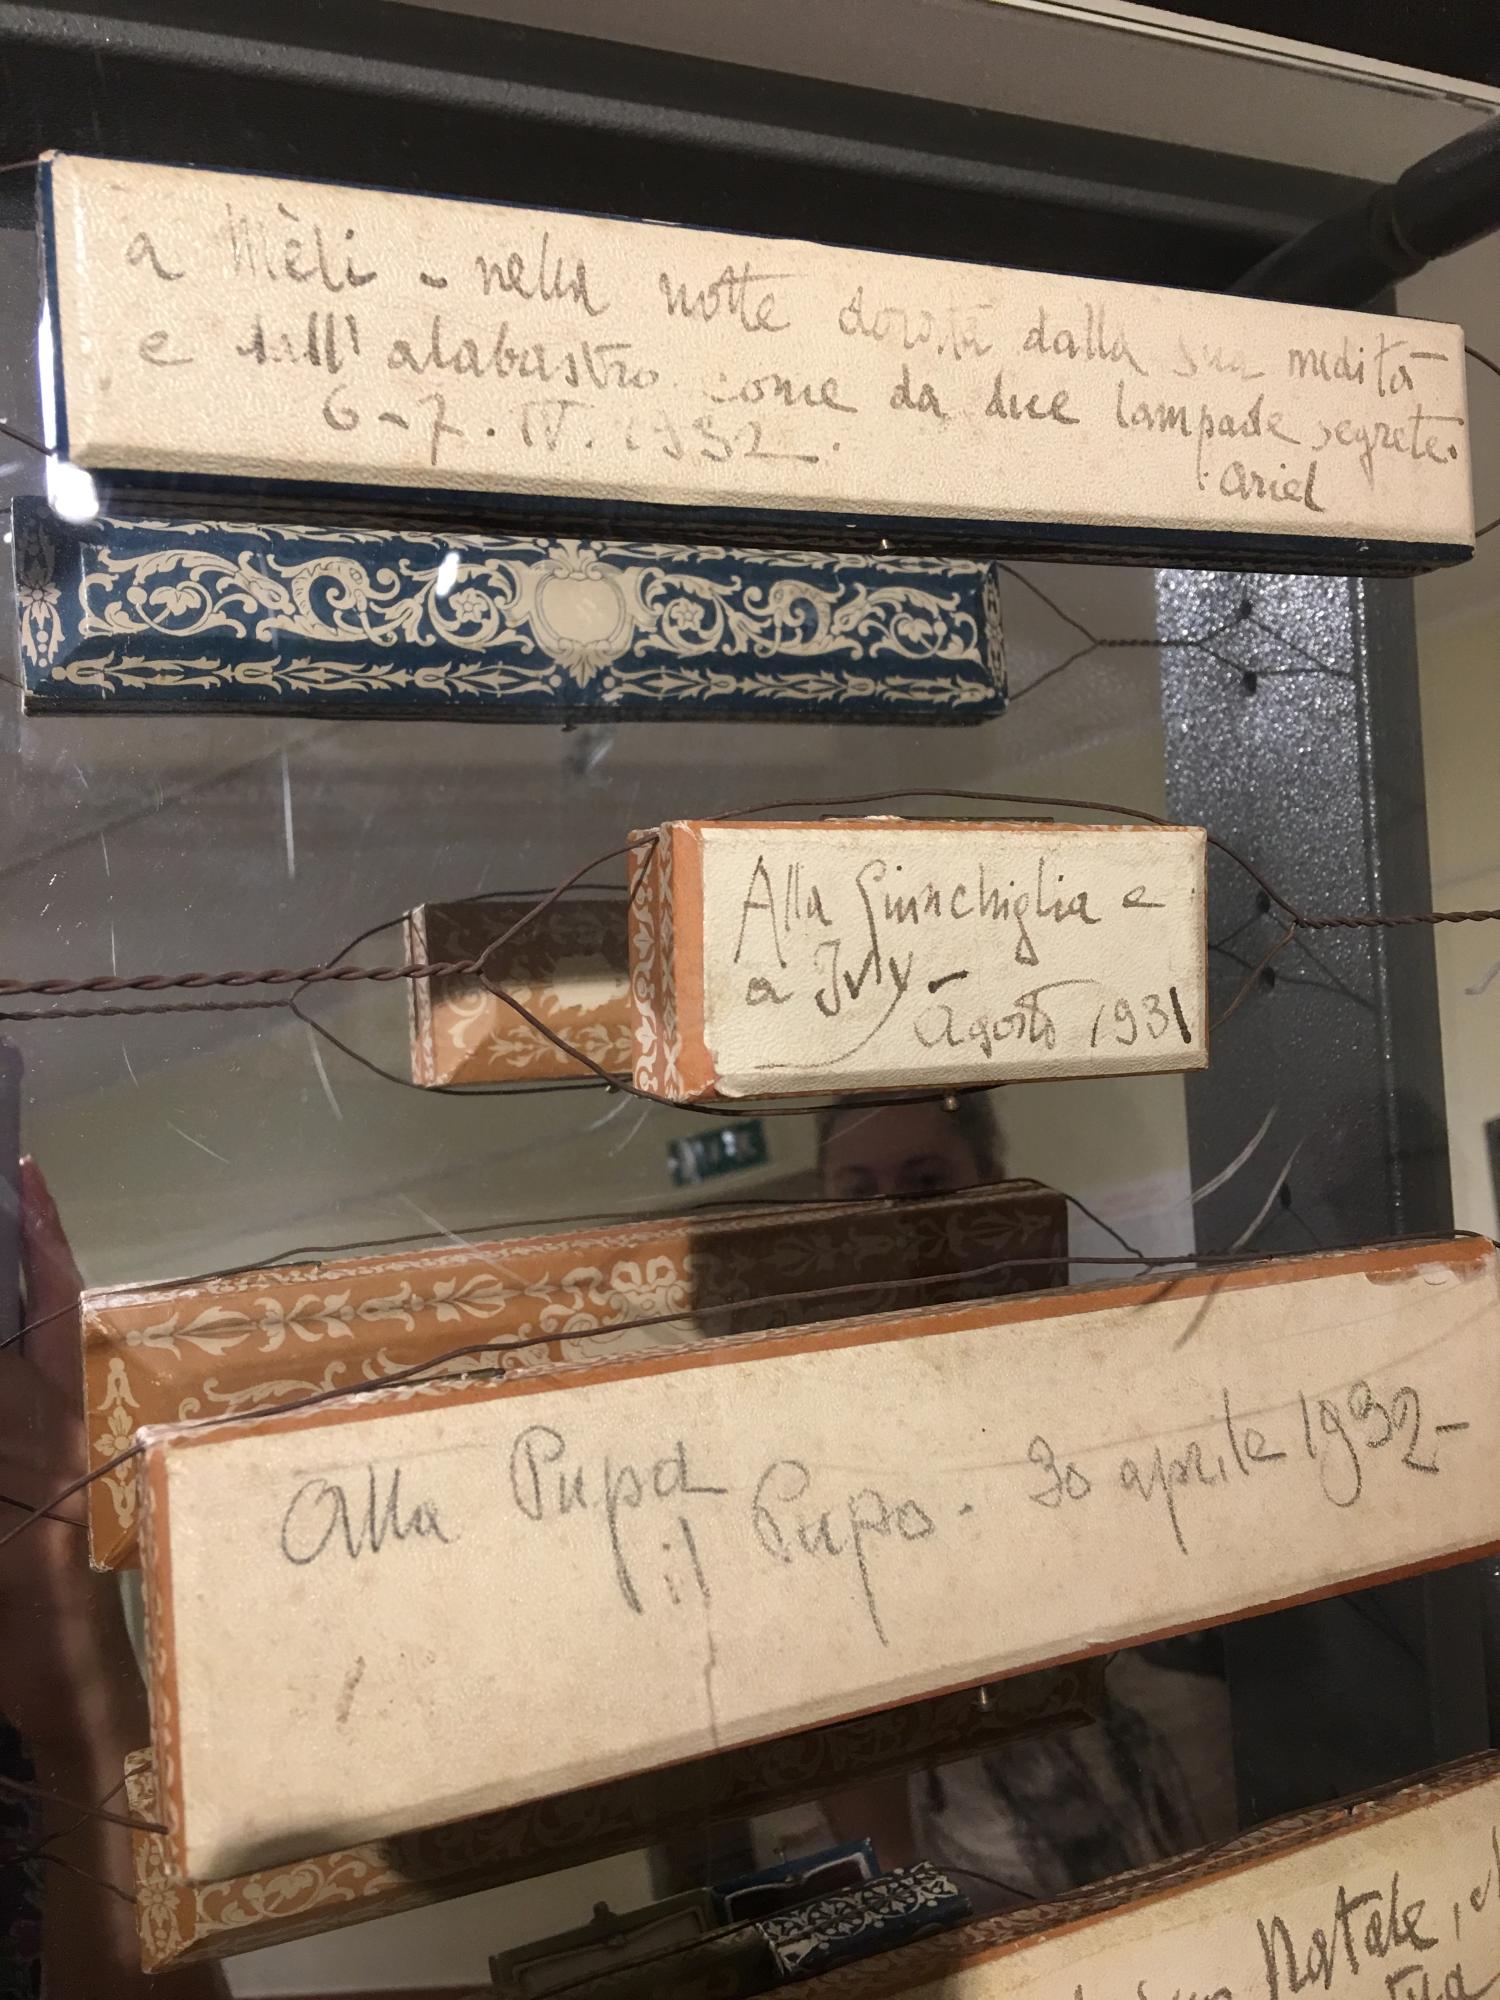 a Mèli - nella notte dorata dalla sua nudità
e dall' alabastro come da due lampade segrete.
6-7. IV. 1932.
Ariel
Alla Giunchiglia e
a Jvy -
Agosto 1931
Alla Pupa
il Pupo. 30 aprile 1932-
Natale,